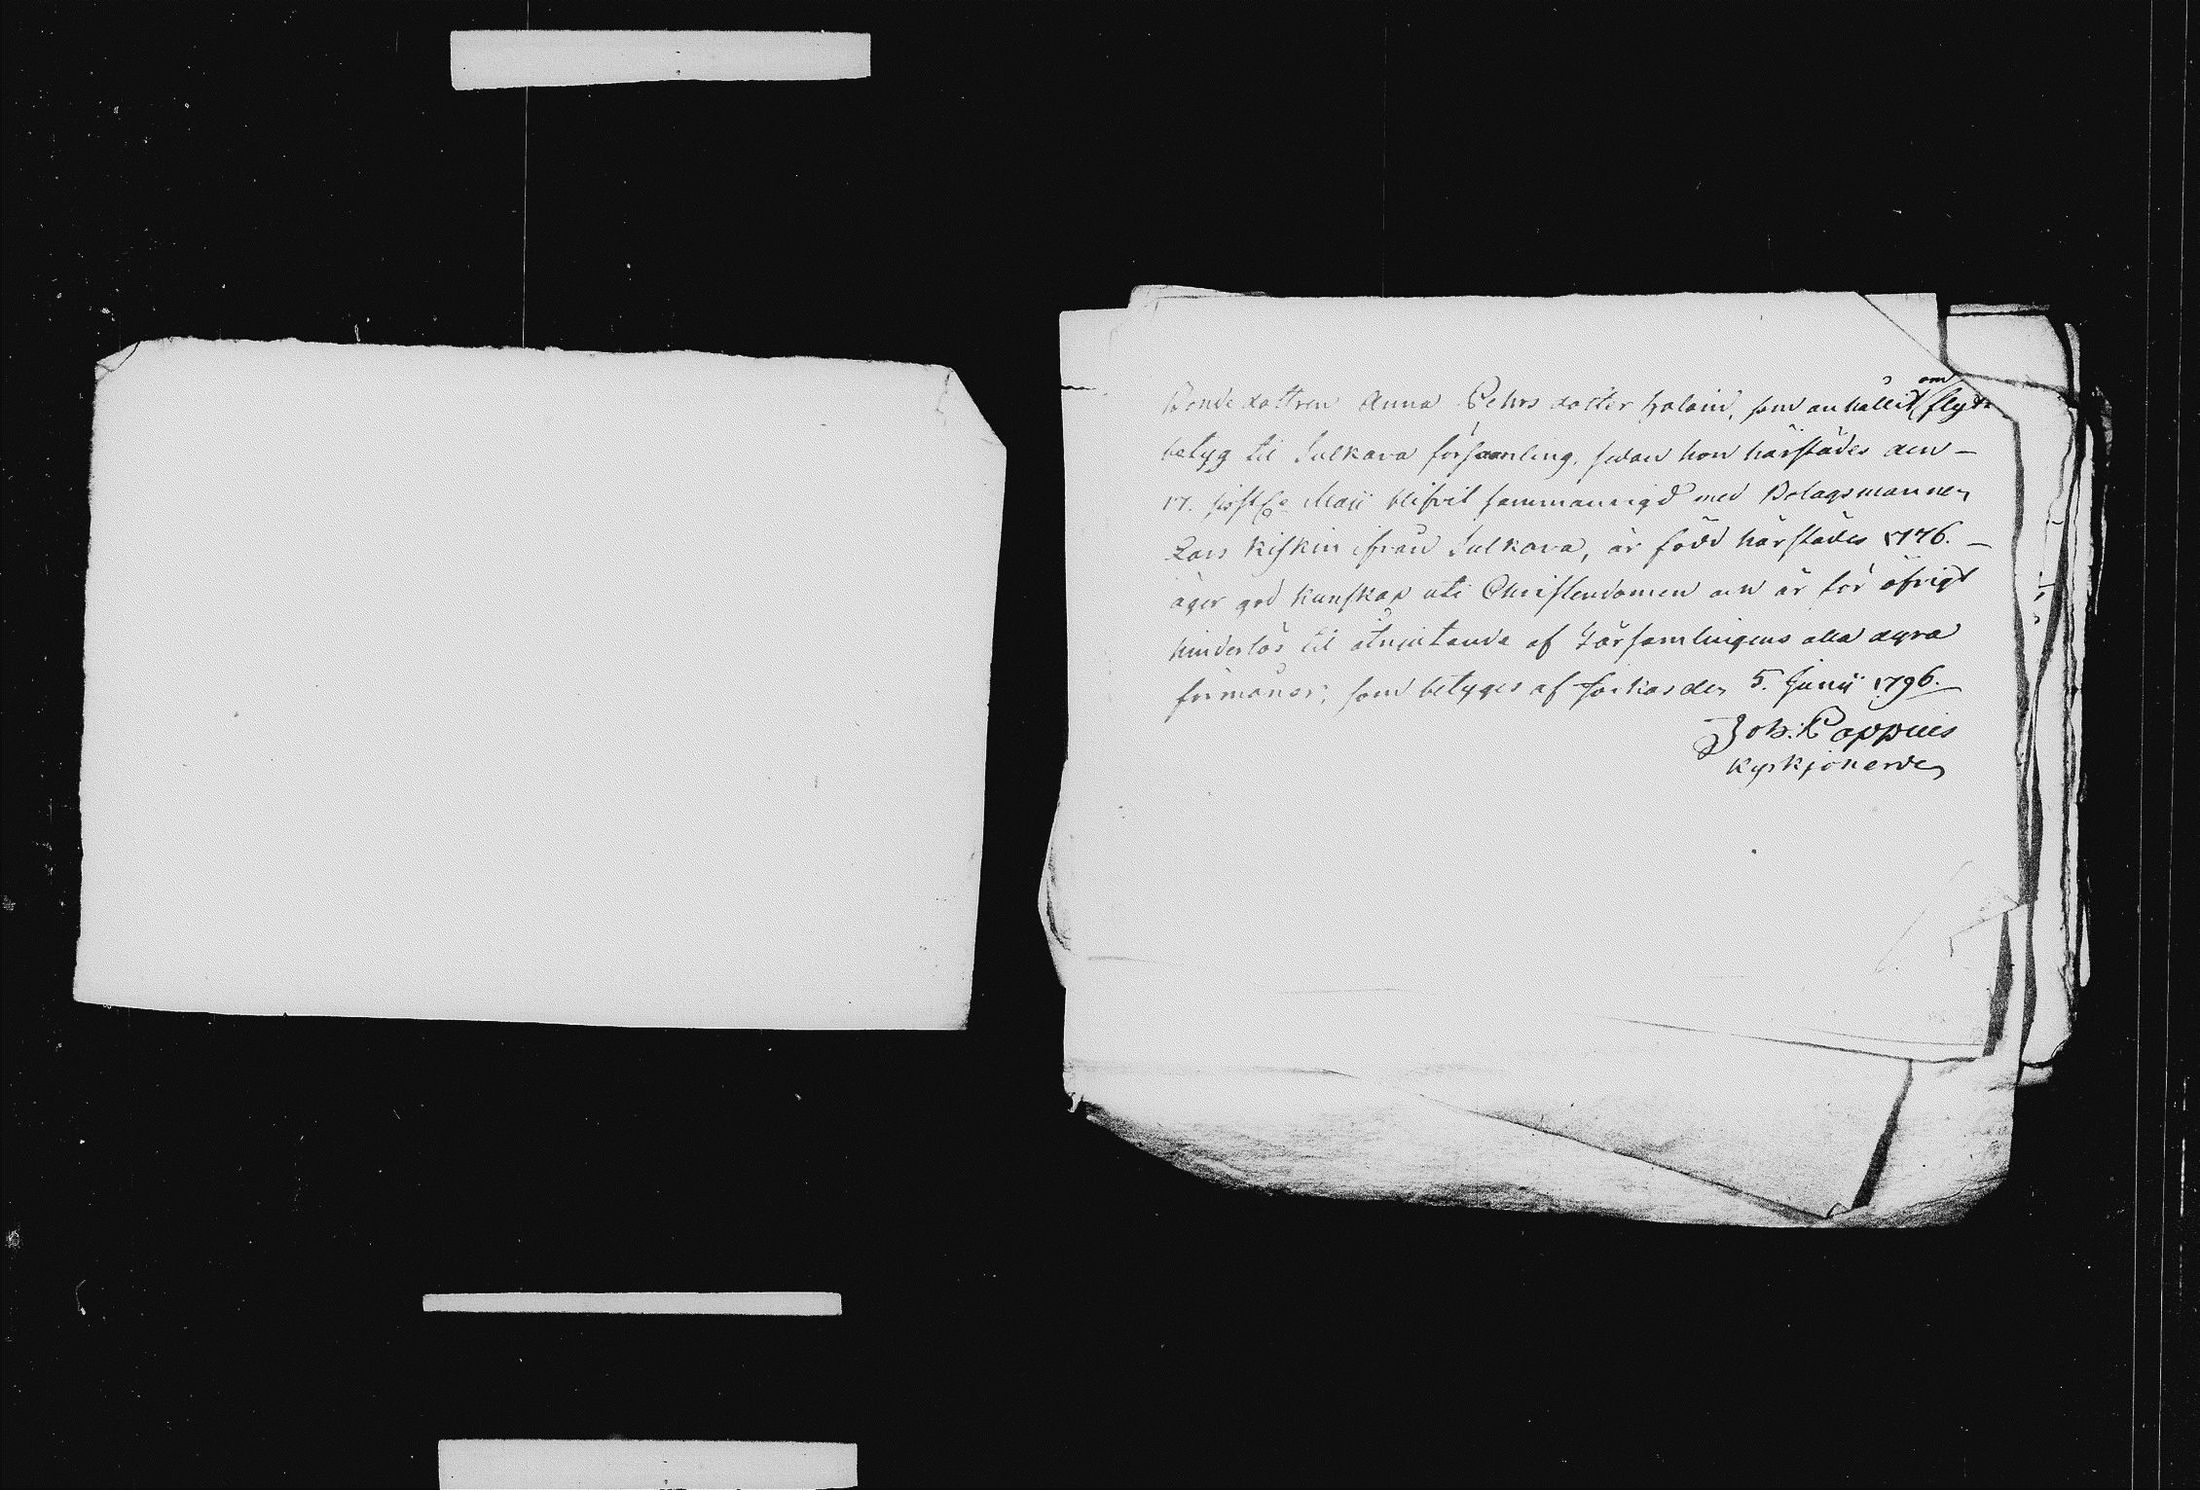 Bondedottren Anna Pehrs dotter Holain, som anhållit om flytt
betyg til Sulkava församling, sedan hon härstädes den –
17. sistl. Maji blifvit sammanvigd med Bolagsmannen
Lars Kiskin ifrån Sulkava, är född härstädes 1776. –
äger god kunskap uti Christendomen och är för öfrigt
hinderlös til åtnjutande af Församlingens alla dyra
förmåner; som betyges af Jockas den 5. Junii 1796.
Joh. Poppius
Kyrkjoherde